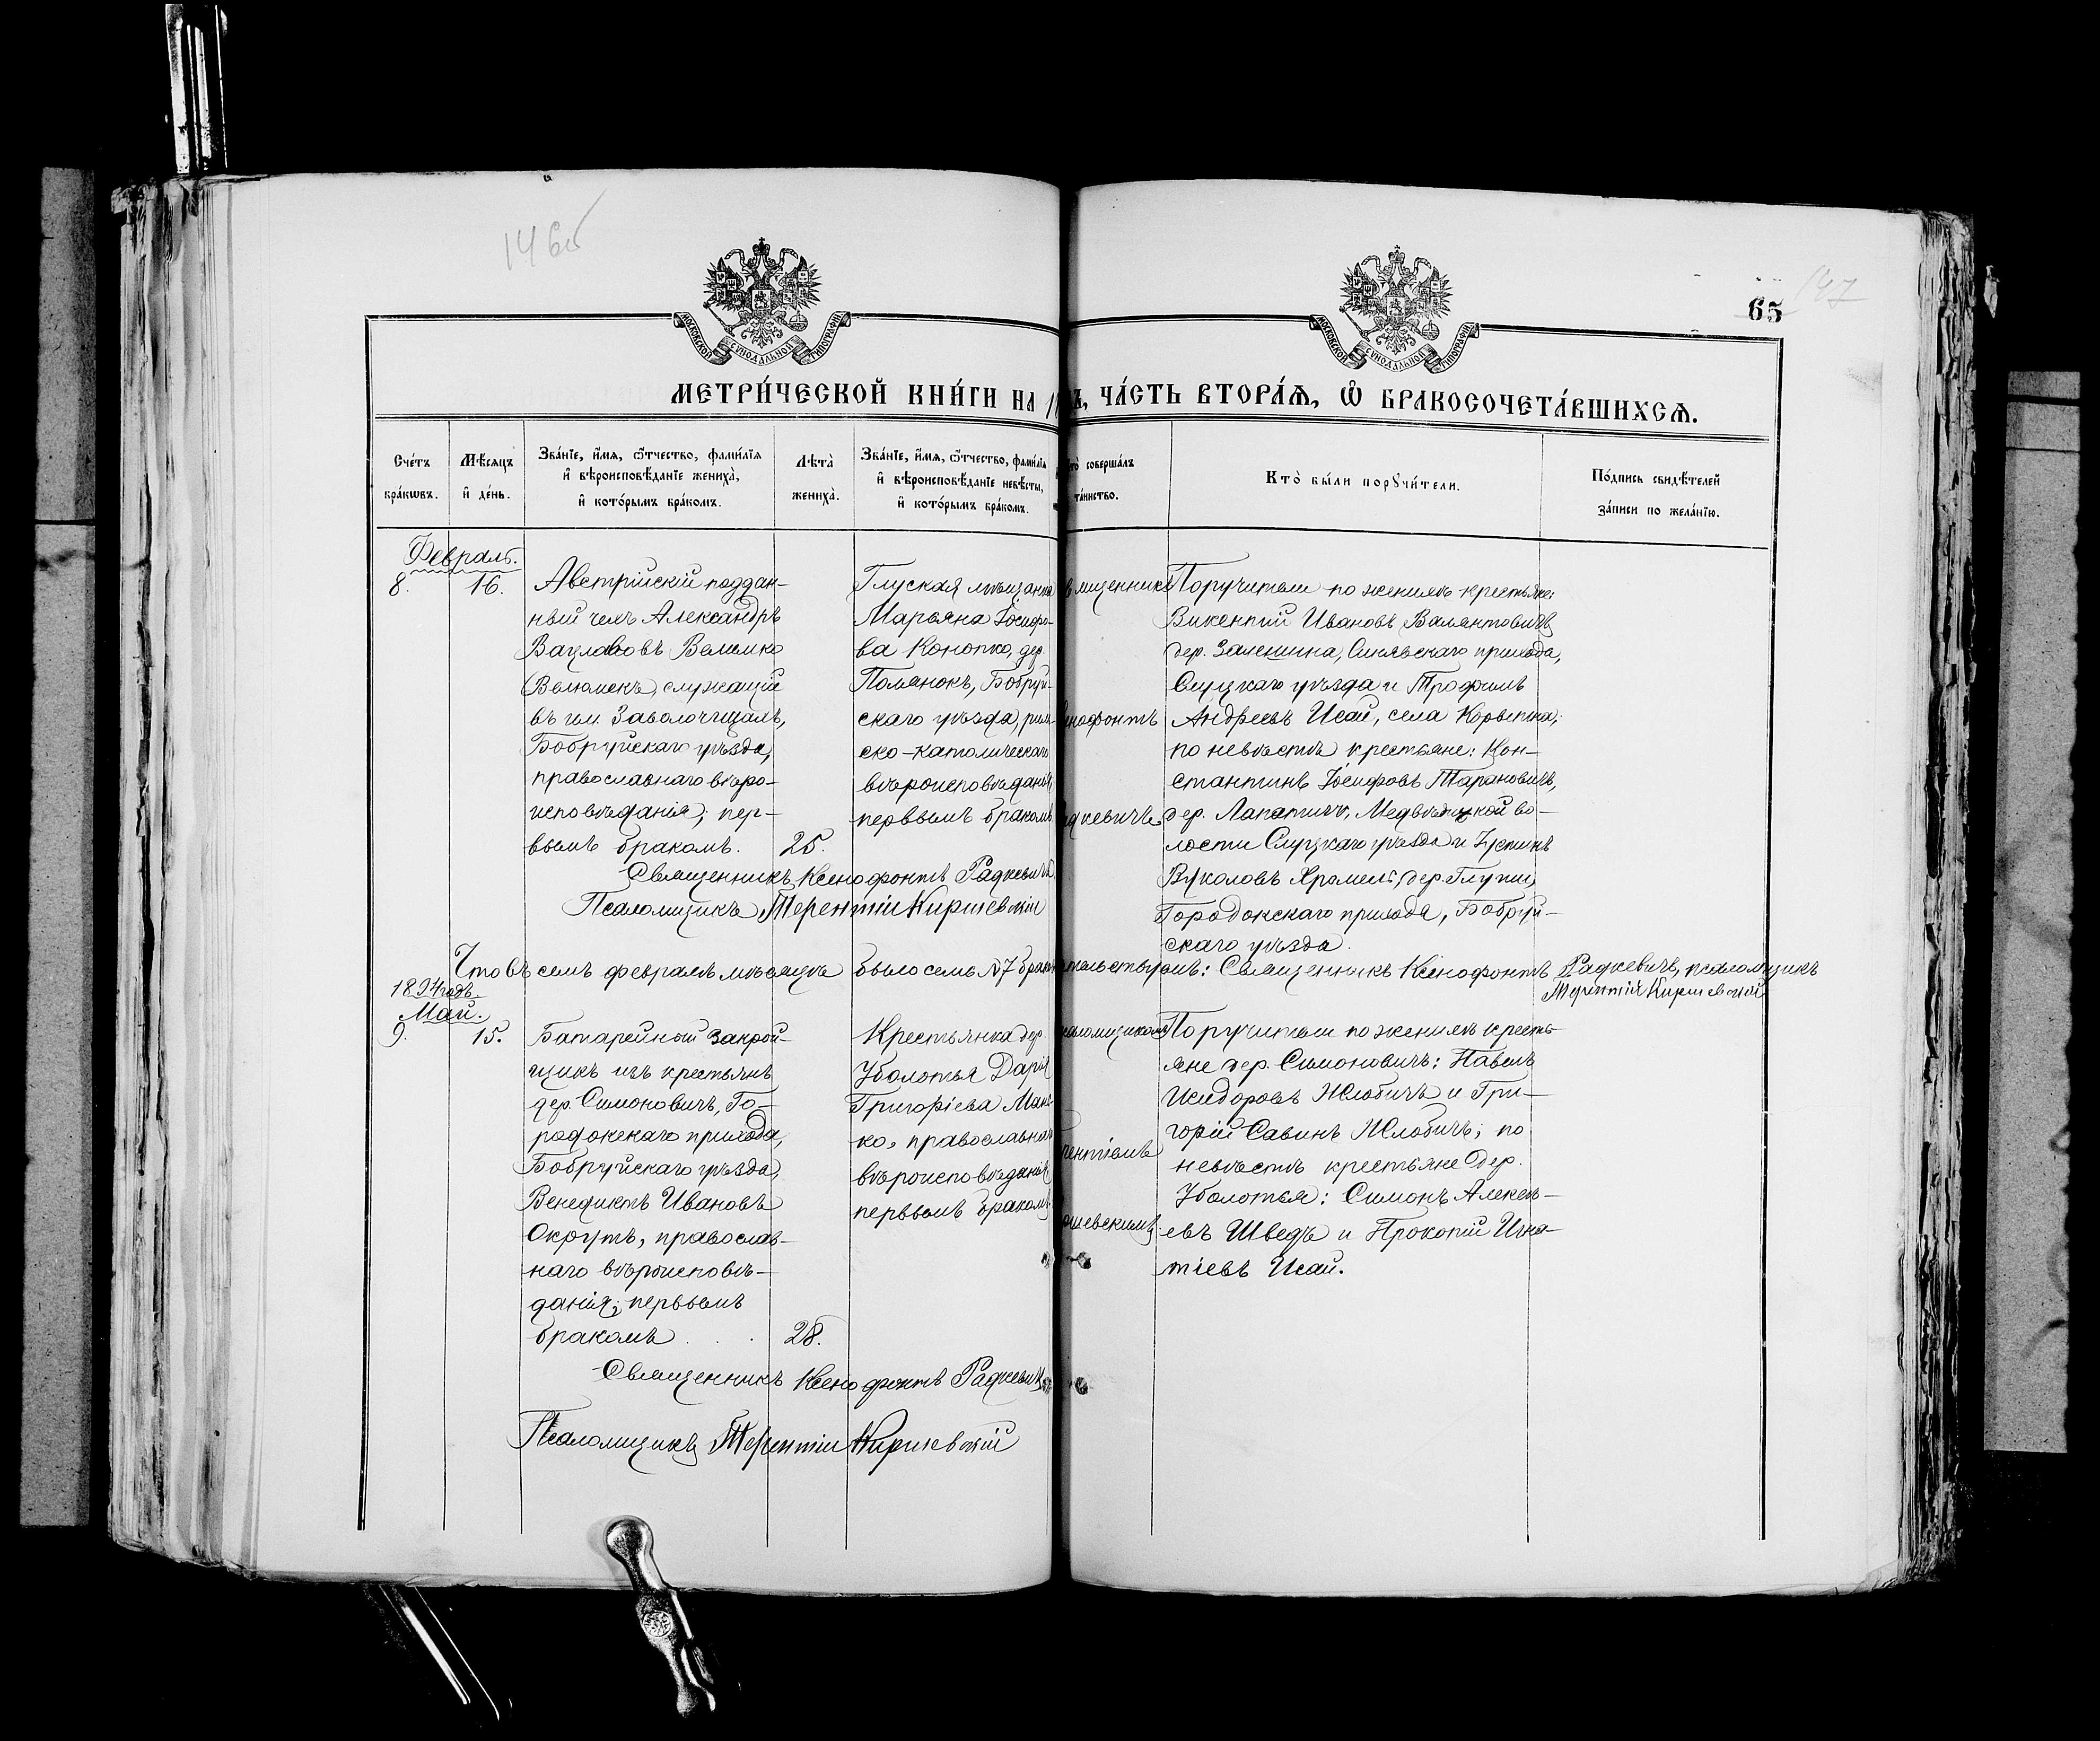 146об
147
65
МОСКОВСКОЙ СѴНОДАЛЬНОЙ ТИПОГРАФІИ
МОСКОВСКОЙ СѴНОДАЛЬНОЙ ТИПОГРАФІИ
МЕТРИ́ЧЕСКОЙ КНИ́ГИ НА 1 Ъ, ЧА́СТЬ ВТОРА́Ѧ, Ѡ҆ БРАКОСОЧЕТА́ВШИХСѦ.
Сче́тъ
бра́кѡвъ.
Мѣ́сѧцъ
и҆ де́нь.
Зва́нїе, и҆́мѧ, ѻ҆́тчество, фами́лїѧ
и҆ вѣроисповѣ́данїе жениха̀,
и҆ кото́рымъ бра́комъ.
Лѣта̀
жениха̀.
Зва́нїе, и҆́мѧ, ѻ҆́тчество, фами́лїѧ
и҆ вѣроисповѣ́данїе невѣ́сты,
и҆ кото́рымъ бра́комъ.
то̀ соверша́лъ
та́инство.
Кто̀ бы́ли порꙋчи́тели.
По́дпись свидѣ́телей
за́писи по жела́нїю.
Февраль.
8.
16.
Австрійскій поддан-
ный чехъ Александръ
Вацлавовъ Велимко
(Велюмекъ), служащій
въ им. Заволочицахъ,
Бобруйскаго уѣзда,
православнаго вѣро-
исповѣданія; пер-
вымъ бракомъ.
25.
Глуская мѣщанка
Марьяна Іосифо-
ва Конопко, дер.
Полянокъ, Бобруй-
скаго уѣзда, рим-
ско-католическаго
вѣроисповѣданія,
первымъ бракомъ.
вященник
енофонтъ
дкевичъ
Поручители по женихѣ крестьяне:
Викентій Ивановъ Валантовичъ
дер. Залешина, Синявскаго прихода,
Слуцкаго уѣзда и Трофимъ
Андреевъ Исай, села Корытна,
по невѣстѣ крестьяне: Кон-
стантинъ Іосифовъ Тарановичъ,
дер. Лапатичъ, Медвѣжской во-
лости Слуцкаго уѣзда и Іустинъ
Вуколовъ Храмель, дер. Глуши,
Городокскаго прихода, Бобруй-
скаго уѣзда.
Священникъ Ксенофонтъ Радкевичъ
Псаломщикъ Терентій Киркевскій
Что въ семъ февралѣ мѣсяцѣ было семь №7 брак тельствуемъ: Священникъ Ксенофонтъ Радкевичъ, псаломщикъ
Терентій Киркевскій
1894 годъ.
Май.
9.
15.
Батарейный закрой-
щикъ изъ крестьянъ
дер. Симоновичъ, Го-
родокскаго прихода,
Бобруйскаго уѣзда,
Венедиктъ Ивановъ
Окрутъ, православ-
наго вѣроисповѣ-
данія; первымъ
бракомъ . .
28.
Крестьянка дер.
Уболотья Дарія
Григоріева
ко, православнаго
вѣроисповѣданія
первымъ бракомъ.
саломщиком
рентіемъ
Поручители по женихѣ кресть-
яне дер. Симоновичъ: Павелъ
Исидоровъ Жлобичъ и Гри-
горій Савинъ Жлобичъ; по
невѣстѣ крестьяне дер.
Уболотья: Симонъ Алексѣ-
евъ Шведъ и Прокопій Игна-
тіевъ Исай.
Священникъ Ксенофонтъ Радкевичъ
Псаломщикъ Терентій Киркевскій